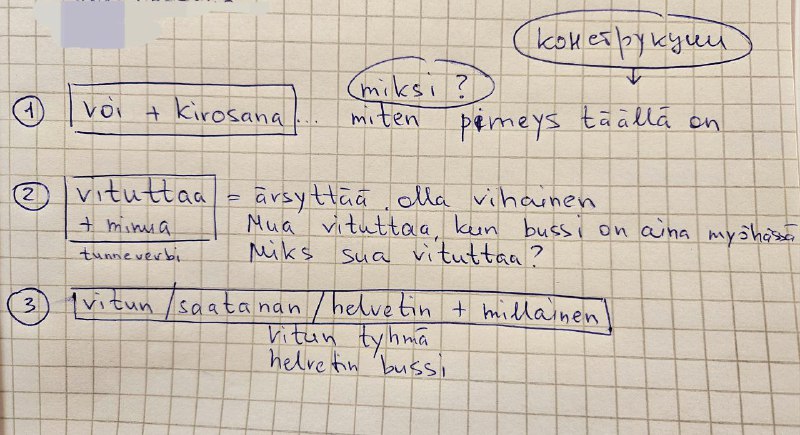 конструкции
miksi?
① voi + kirosana... miten pimeys täällä on
② vituttaa = ärsyttää, olla vihainen
+ minua Mua vituttaa, kun bussi on aina myöhässä
tunneverbi Miks sua vituttaa?
③ vitun/saatanan/helvetin + millainen
vitun tyhmä
helvetin bussi